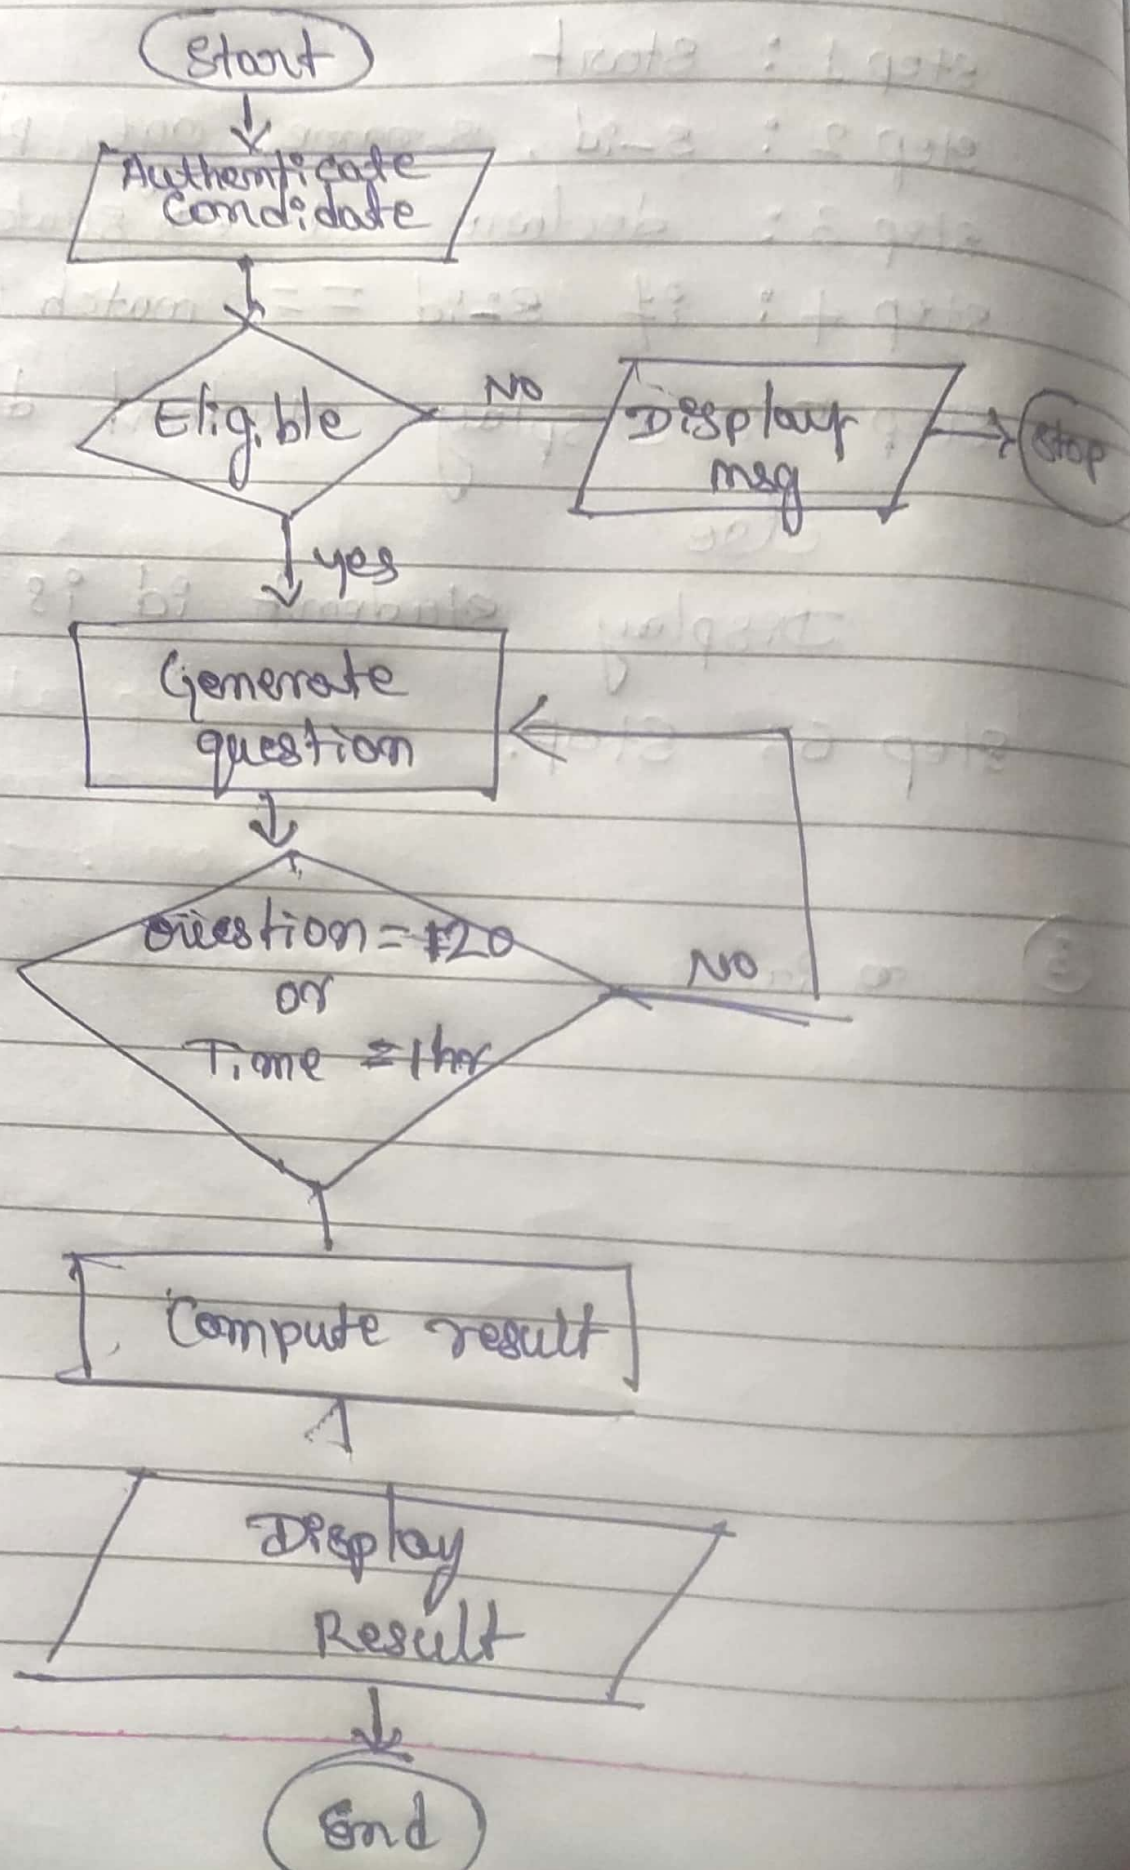 Start
Authenticate
Condidate
Eligible
NO
Display
msg
Stop
yes
Generate
question
question = 120
or
Time = 1hr
NO
Compute result
Display
Result
End